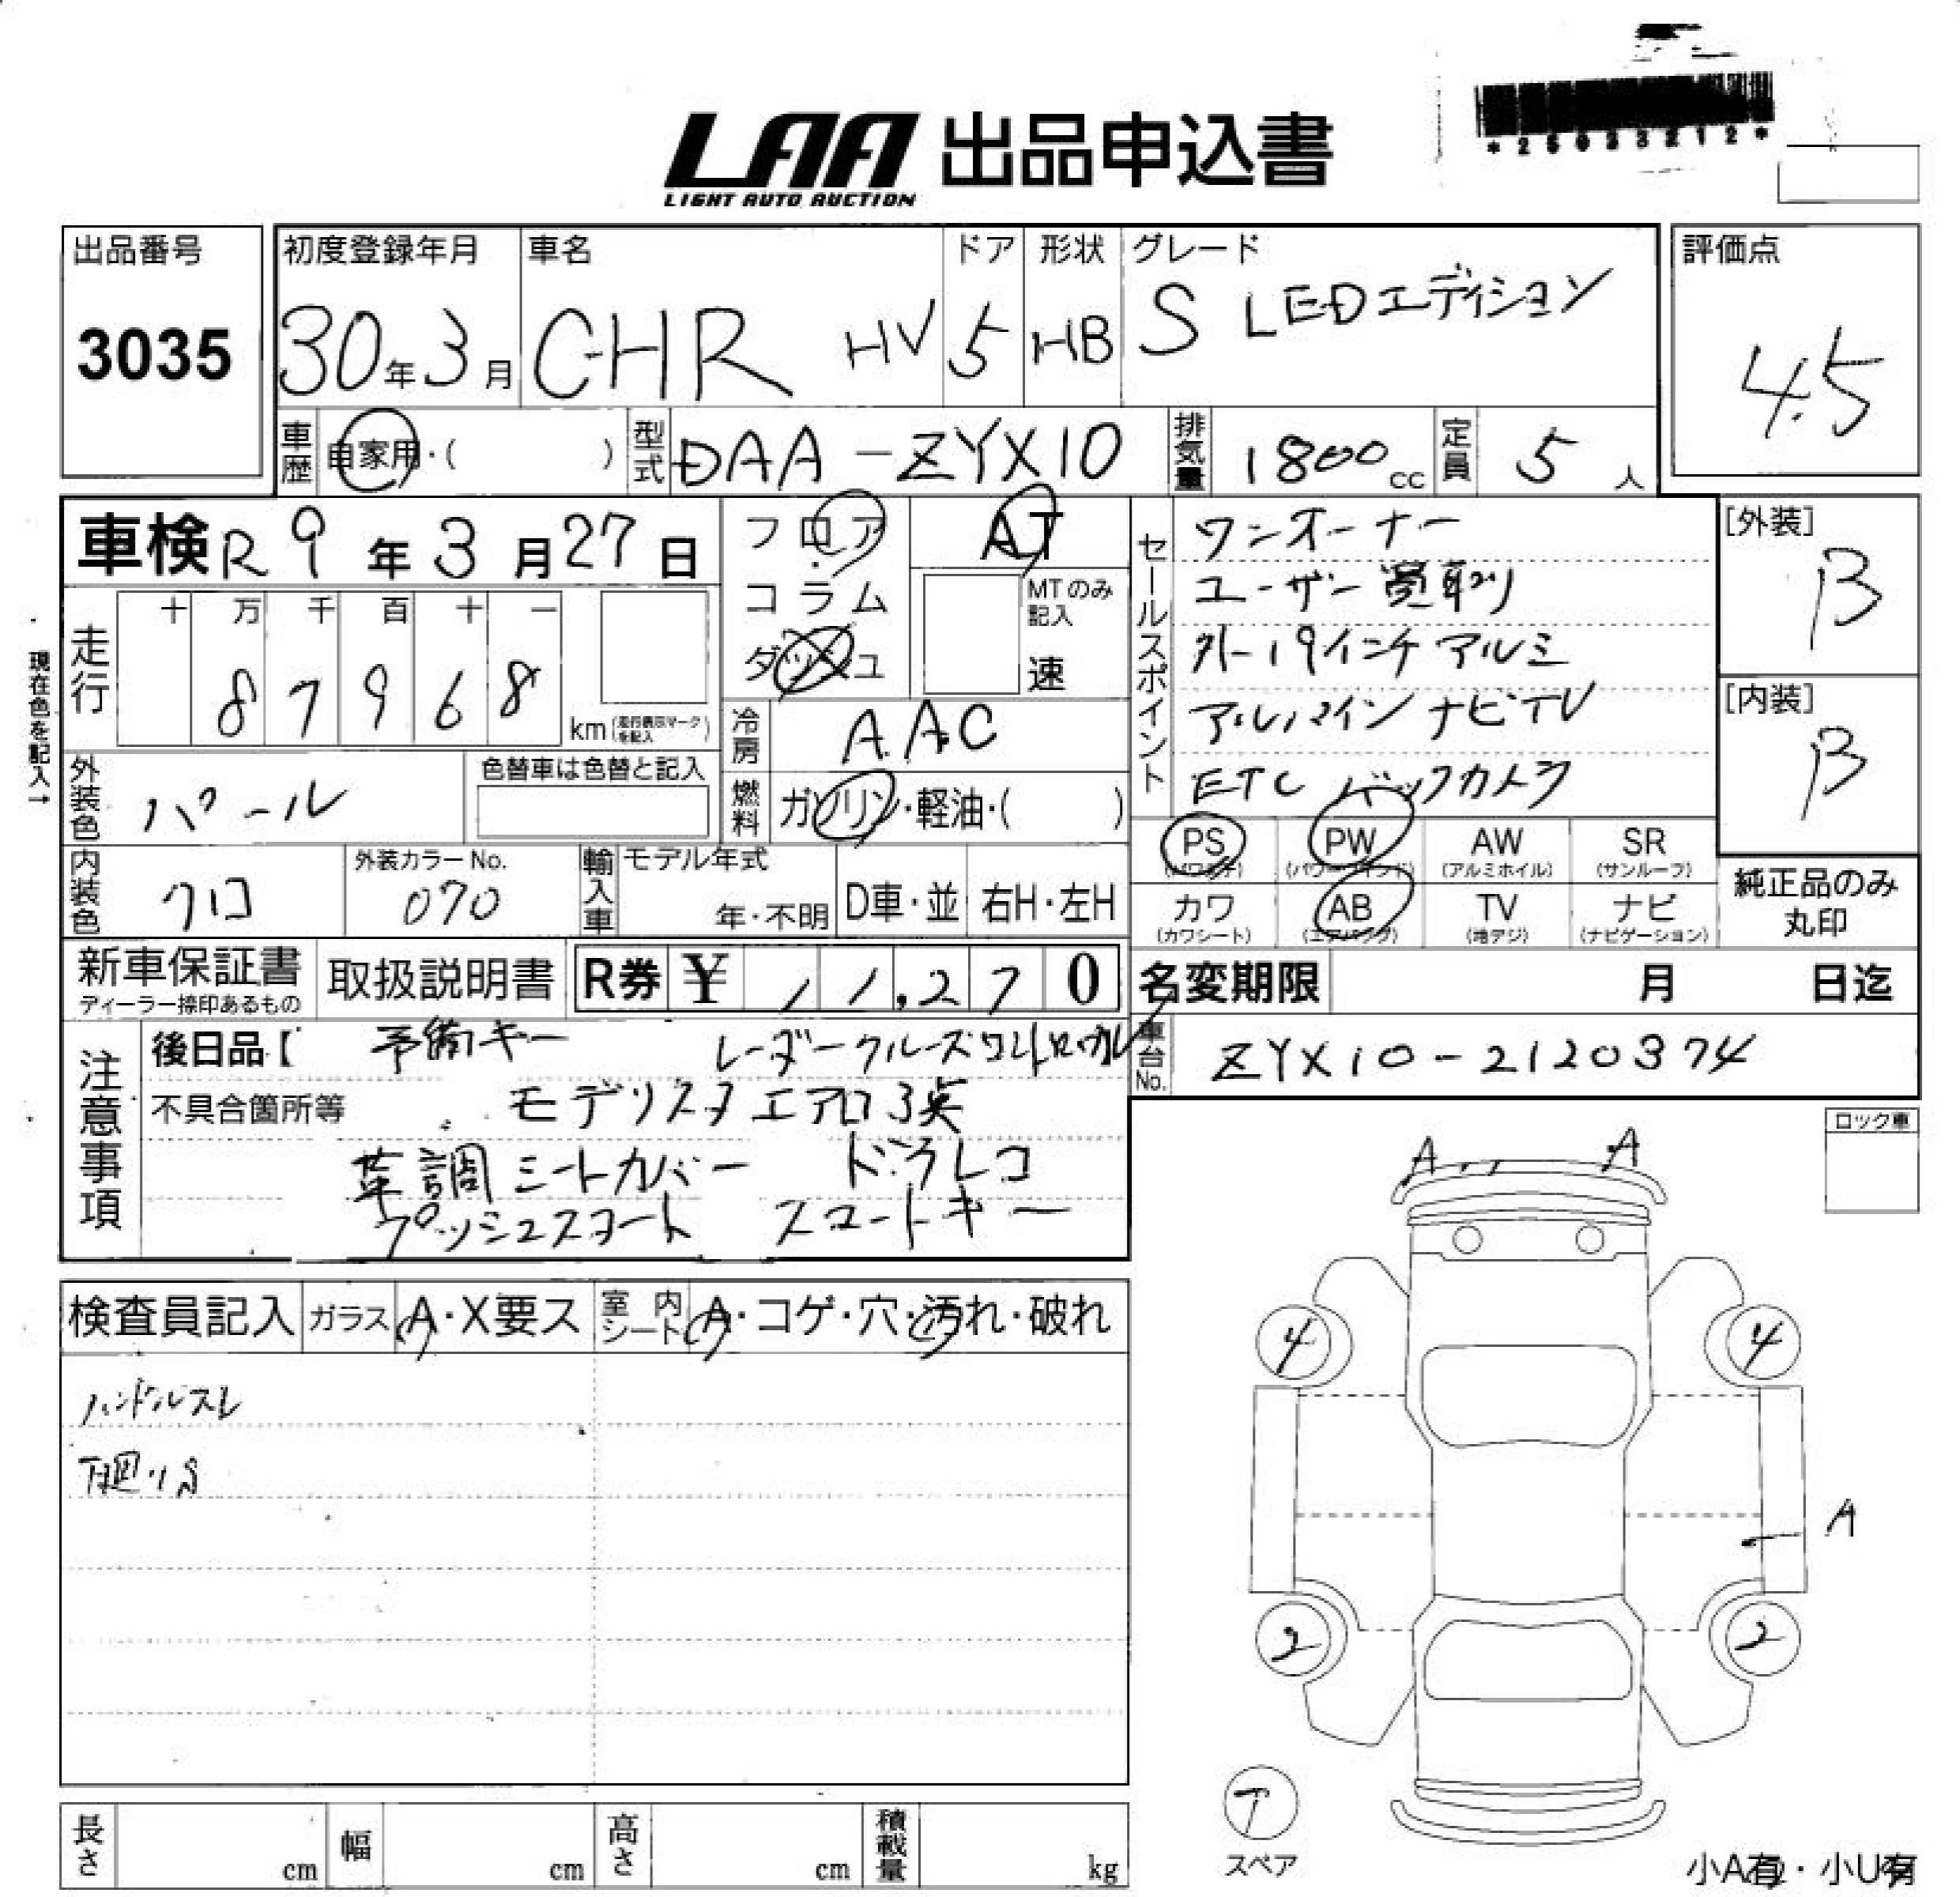 LAA 出品申込書
LIGHT AUTO AUCTION
出品番号
3035
初度登録年月
30年3月
車名
CHR HV
ドア
5
形状
HB
グレード
S LEDエディション
評価点
4.5
車歴 自家用・( )
型式 DAA-ZYX10
排気量 1800cc
定員 5人
車検 R9年3月27日
フロア
コラム
ダッシュ
AT
MTのみ記入
速
セールスポイント
ワンオーナー
ユーザー買取り
外-19インチアルミ
アルパイン ナビTV
ETC バックカメラ
[外装]
B
[内装]
B
現在色を記入→
走行
十 万 千 百 十 一
8 7 9 6 8
km (走行表示マークを記入)
冷房 AAC
燃料 ガソリン・軽油・( )
外装色 パール
色替車は色替と記入
内装色 クロ
外装カラーNo.
070
輸入車
モデル年式
年・不明
D車・並
右H・左H
PS (パワステ)
PW (パワーウインド)
AW (アルミホイル)
SR (サンルーフ)
カワ (カワシート)
AB (エアバッグ)
TV (地デジ)
ナビ (ナビゲーション)
純正品のみ
丸印
新車保証書
ディーラー捺印あるもの
取扱説明書
R券 ¥ 11,270
名変期限 月 日迄
車台No. ZYX10-2120374
注意事項
後日品【 予備キー レーダークルーズコントロール
不具合箇所等 モデリスタエアロ3点
革調シートカバー ドラレコ
プッシュスタート スマートキー
ロック車
A A
検査員記入
ガラス A・X要ス
室内シート A・コゲ・穴・汚れ・破れ
ハンドルスレ
下廻りS
4 4
A
2 2
T
スペア
長さ cm
幅 cm
高さ cm
積載量 kg
小A有・小U有